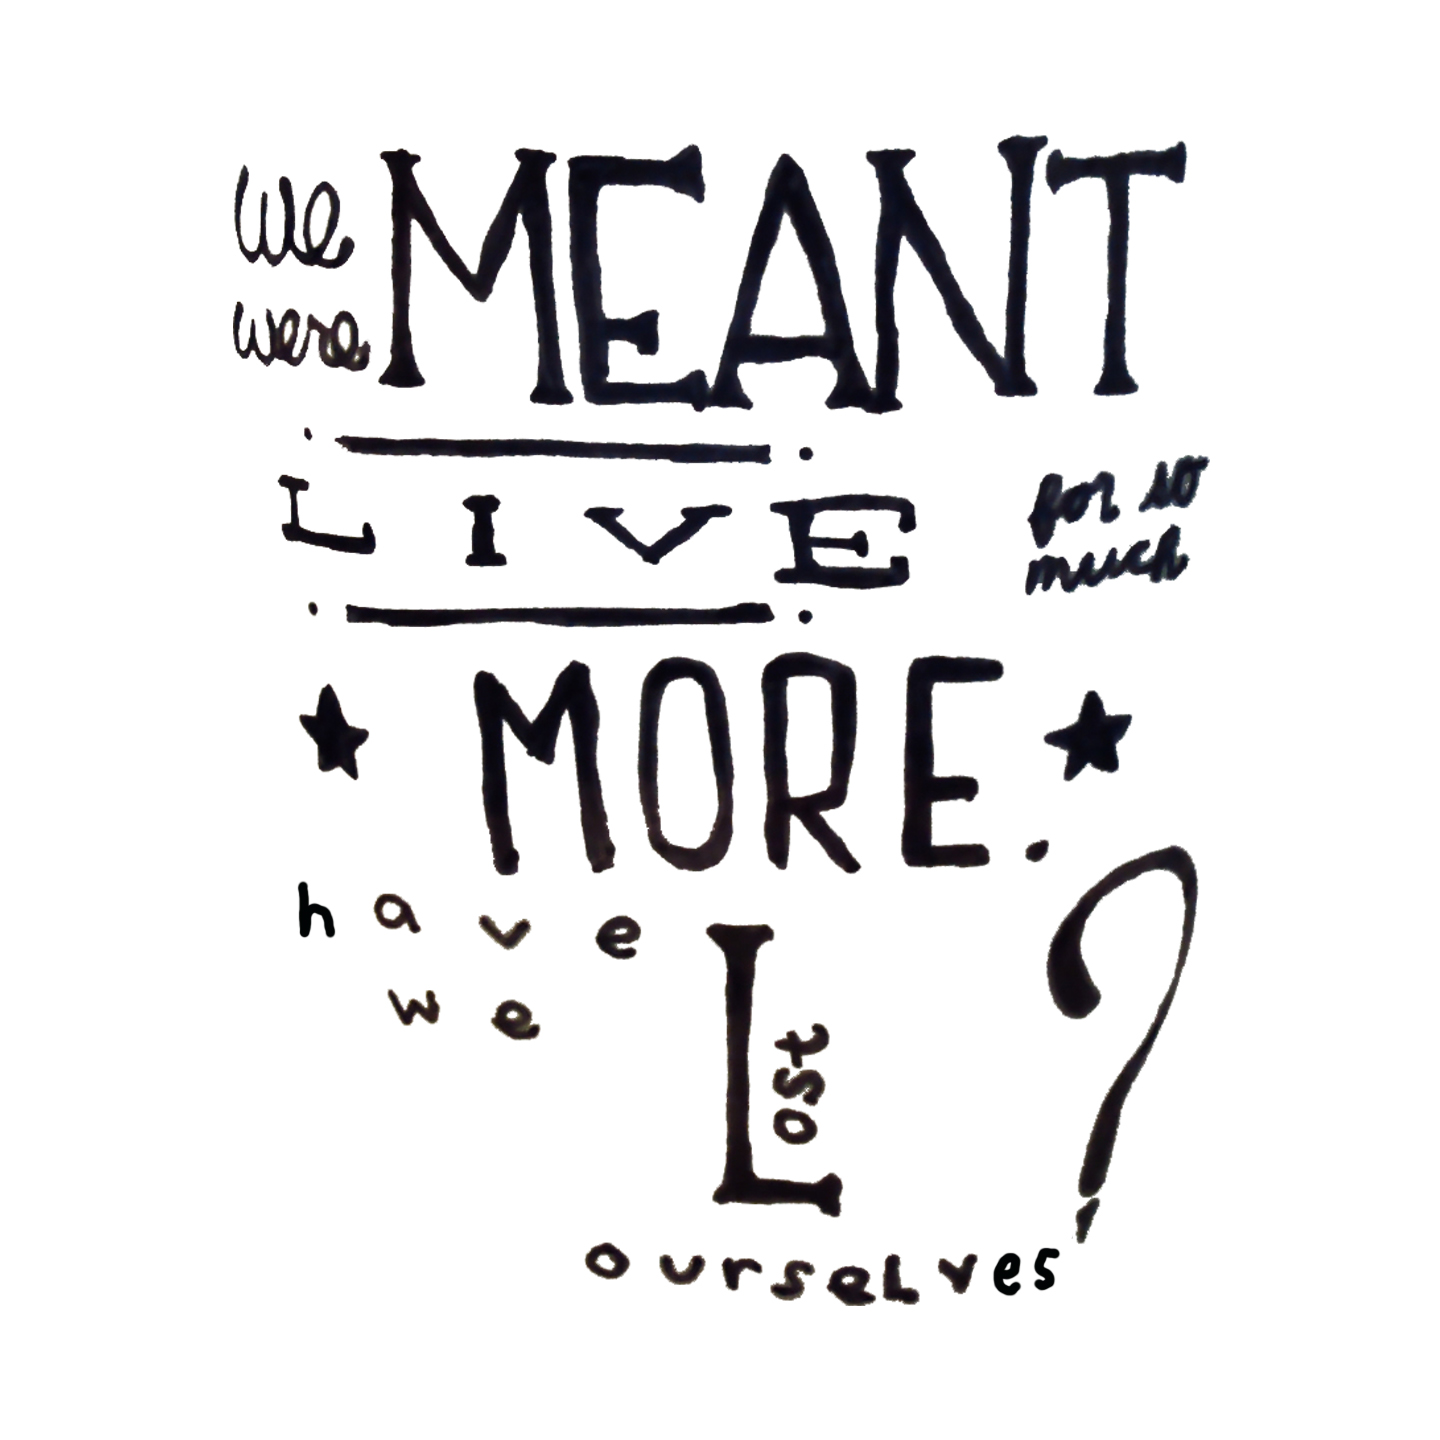 we
were MEANT
LIVE for so
much
MORE.
have
we Lost ?
ourselves